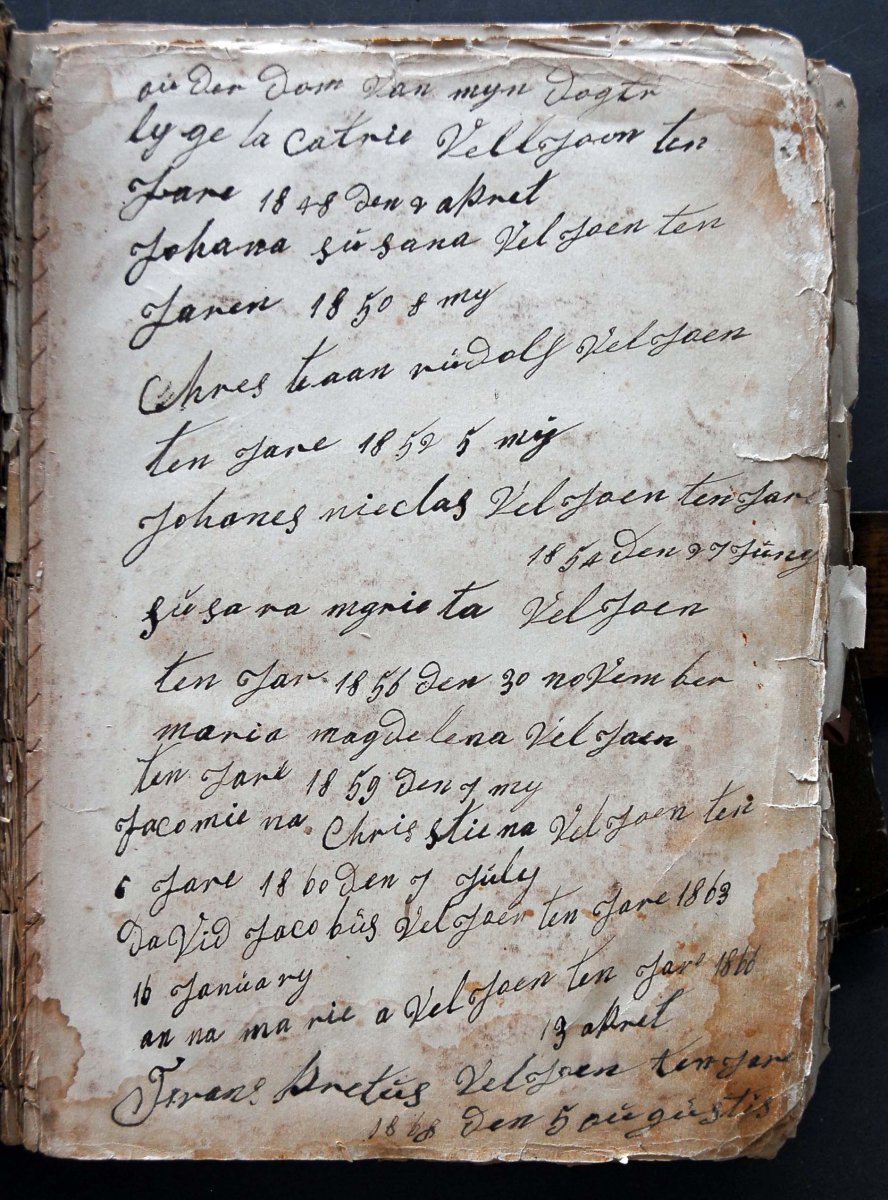 oü der dom van myn dogtr
ly ge la catrie Vell Joen ten
Jare 18 48 den 2 apret
Johana süsana Vel Joen ten
Jaren 18 50 8 my
Chres te aan rüdolf Vel Joen
ten Jare 18 52 5 mÿ
Johanes nieclas Vel Joen ten Jare
18 54 den 27 Jüny
süsara mgrieta Vel Joen
ten Jar 1856 den 30 noVember
maria magdelena Vel Joen
ten Jare 18 59 den 7 my
Jacomie na Chris stiena Vel Joen ten
6 Jare 18 60 den 7 Jüly
daVid Jacobüs VelJoen ten Jare 1863
16 Janüary
an na ma rie a Vel Joen ten Jare 1866
13 apret
Frans pretüs VelJoen ten Jare
1868 den 5 oügüstis